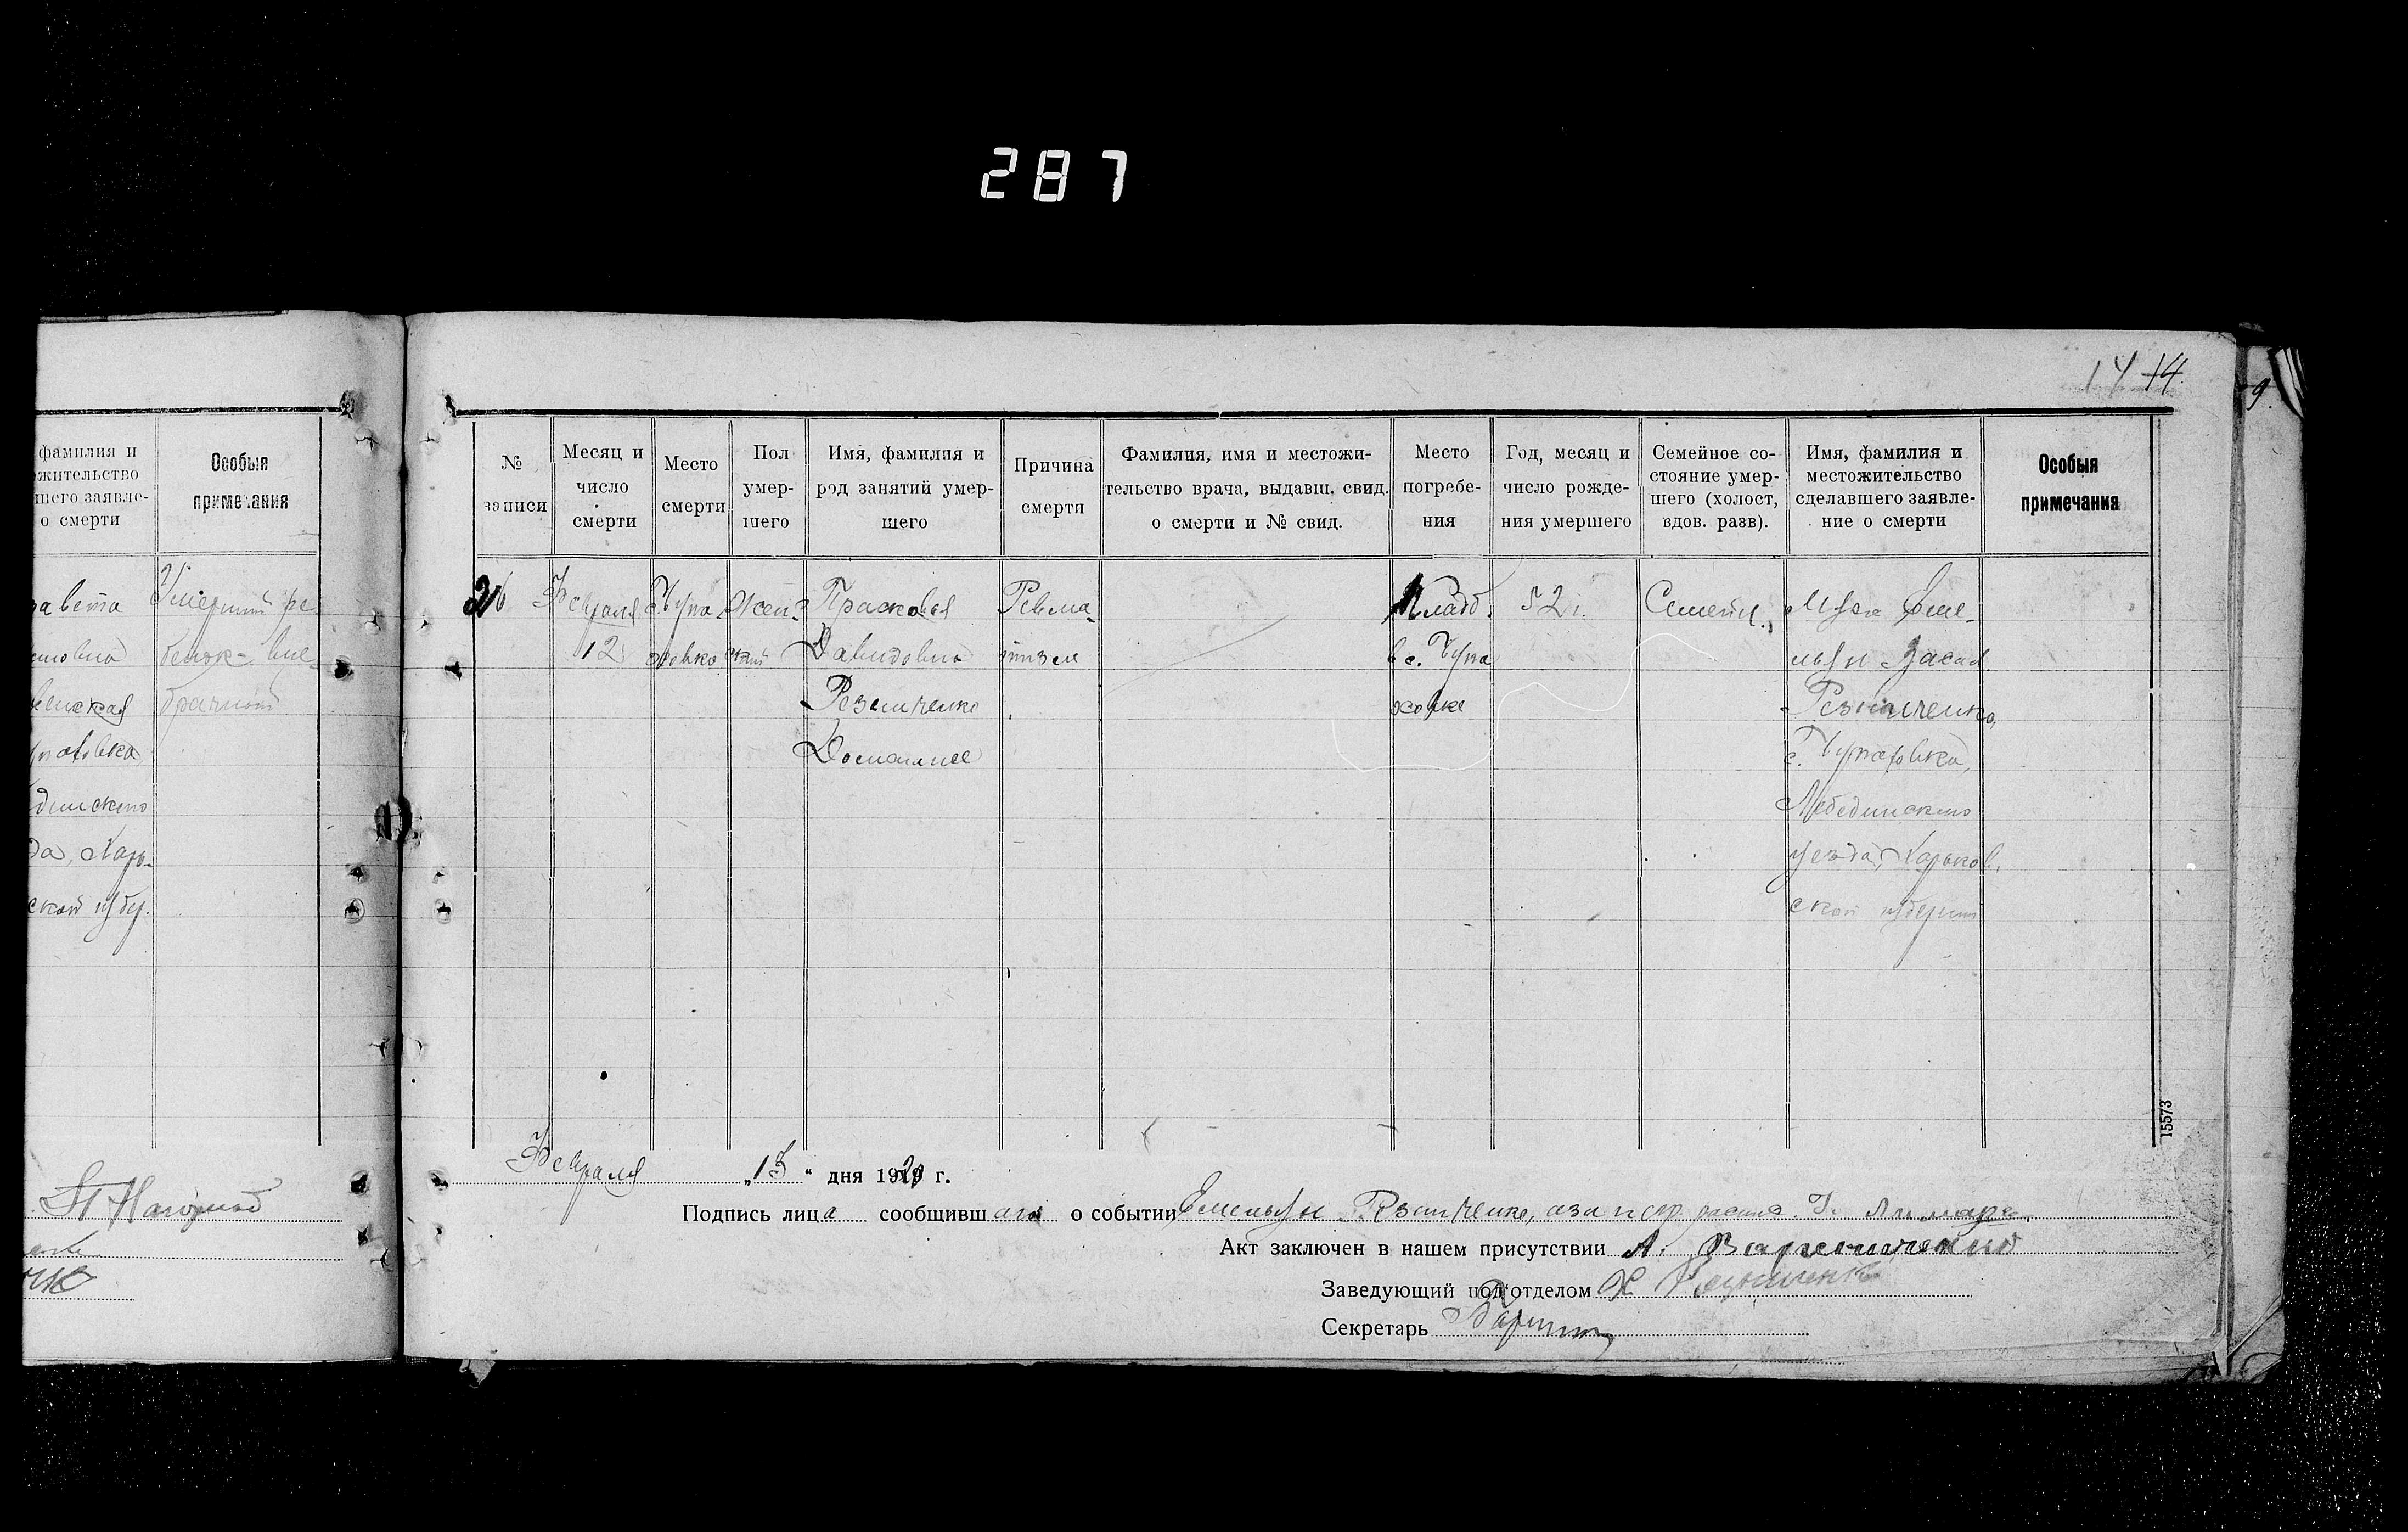 287
14 14.
9.
фамилия и
жительство
шего заявле-
о смерти
Особыя
примечания
Умерший ре
бенок вне-
брачный
завета
повка
динского
да, Харь-
ской губер.
№
записи
Месяц и
число
смерти
Место
смерти
Пол
умер-
шего
Имя, фамилия и
род занятий умер-
шего
Причина
смерти
Фамилия, имя и местожи-
тельство врача, выдавш. свид.
о смерти и № свид.
Место
погребе-
ния
Год, месяц и
число рожде-
ния умершего
Семейное со-
стояние умер-
шего (холост,
вдов. разв).
Имя, фамилия и
местожительство
сделавшего заявле-
ние о смерти
Особыя
примечания
26
Февраля
12
с. Чупа
ховка
Женс
кий
Прасковья
Давидовна
Резниченко
Домашнее
Ревма-
тизм
Кладб.
в с. Чупа
ховке
52 г.
Семейн.
Муж Еме-
льян Васил.
Резниченко,
с. Чупаховка,
Лебединского
уезда, Харьков.
ской губернии
15573
Февраля „13“ дня 1920 г.
Подпись лица сообщившаго о событии Емельян Резниченко, а за негр. распис. Г. Лимарь.
Акт заключен в нашем присутствии А.
Заведующий подотделом
Секретарь